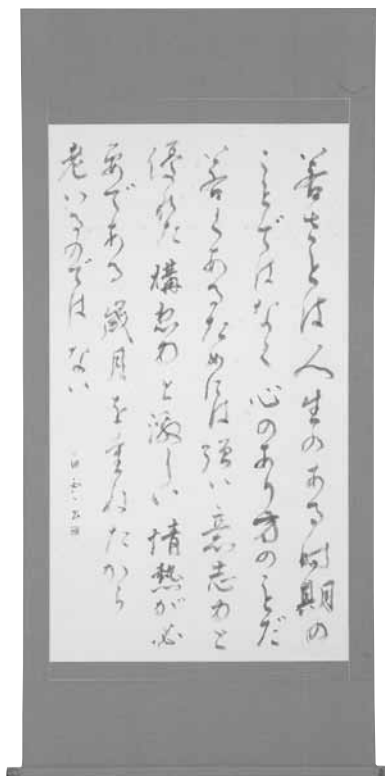 若さとは人生のある時期の
ことではなく心のあり方のことだ
若くあるためには強い意志力と
優れた構想力と激しい情熱が必
要である歳月を重ねたから
老いるのではない